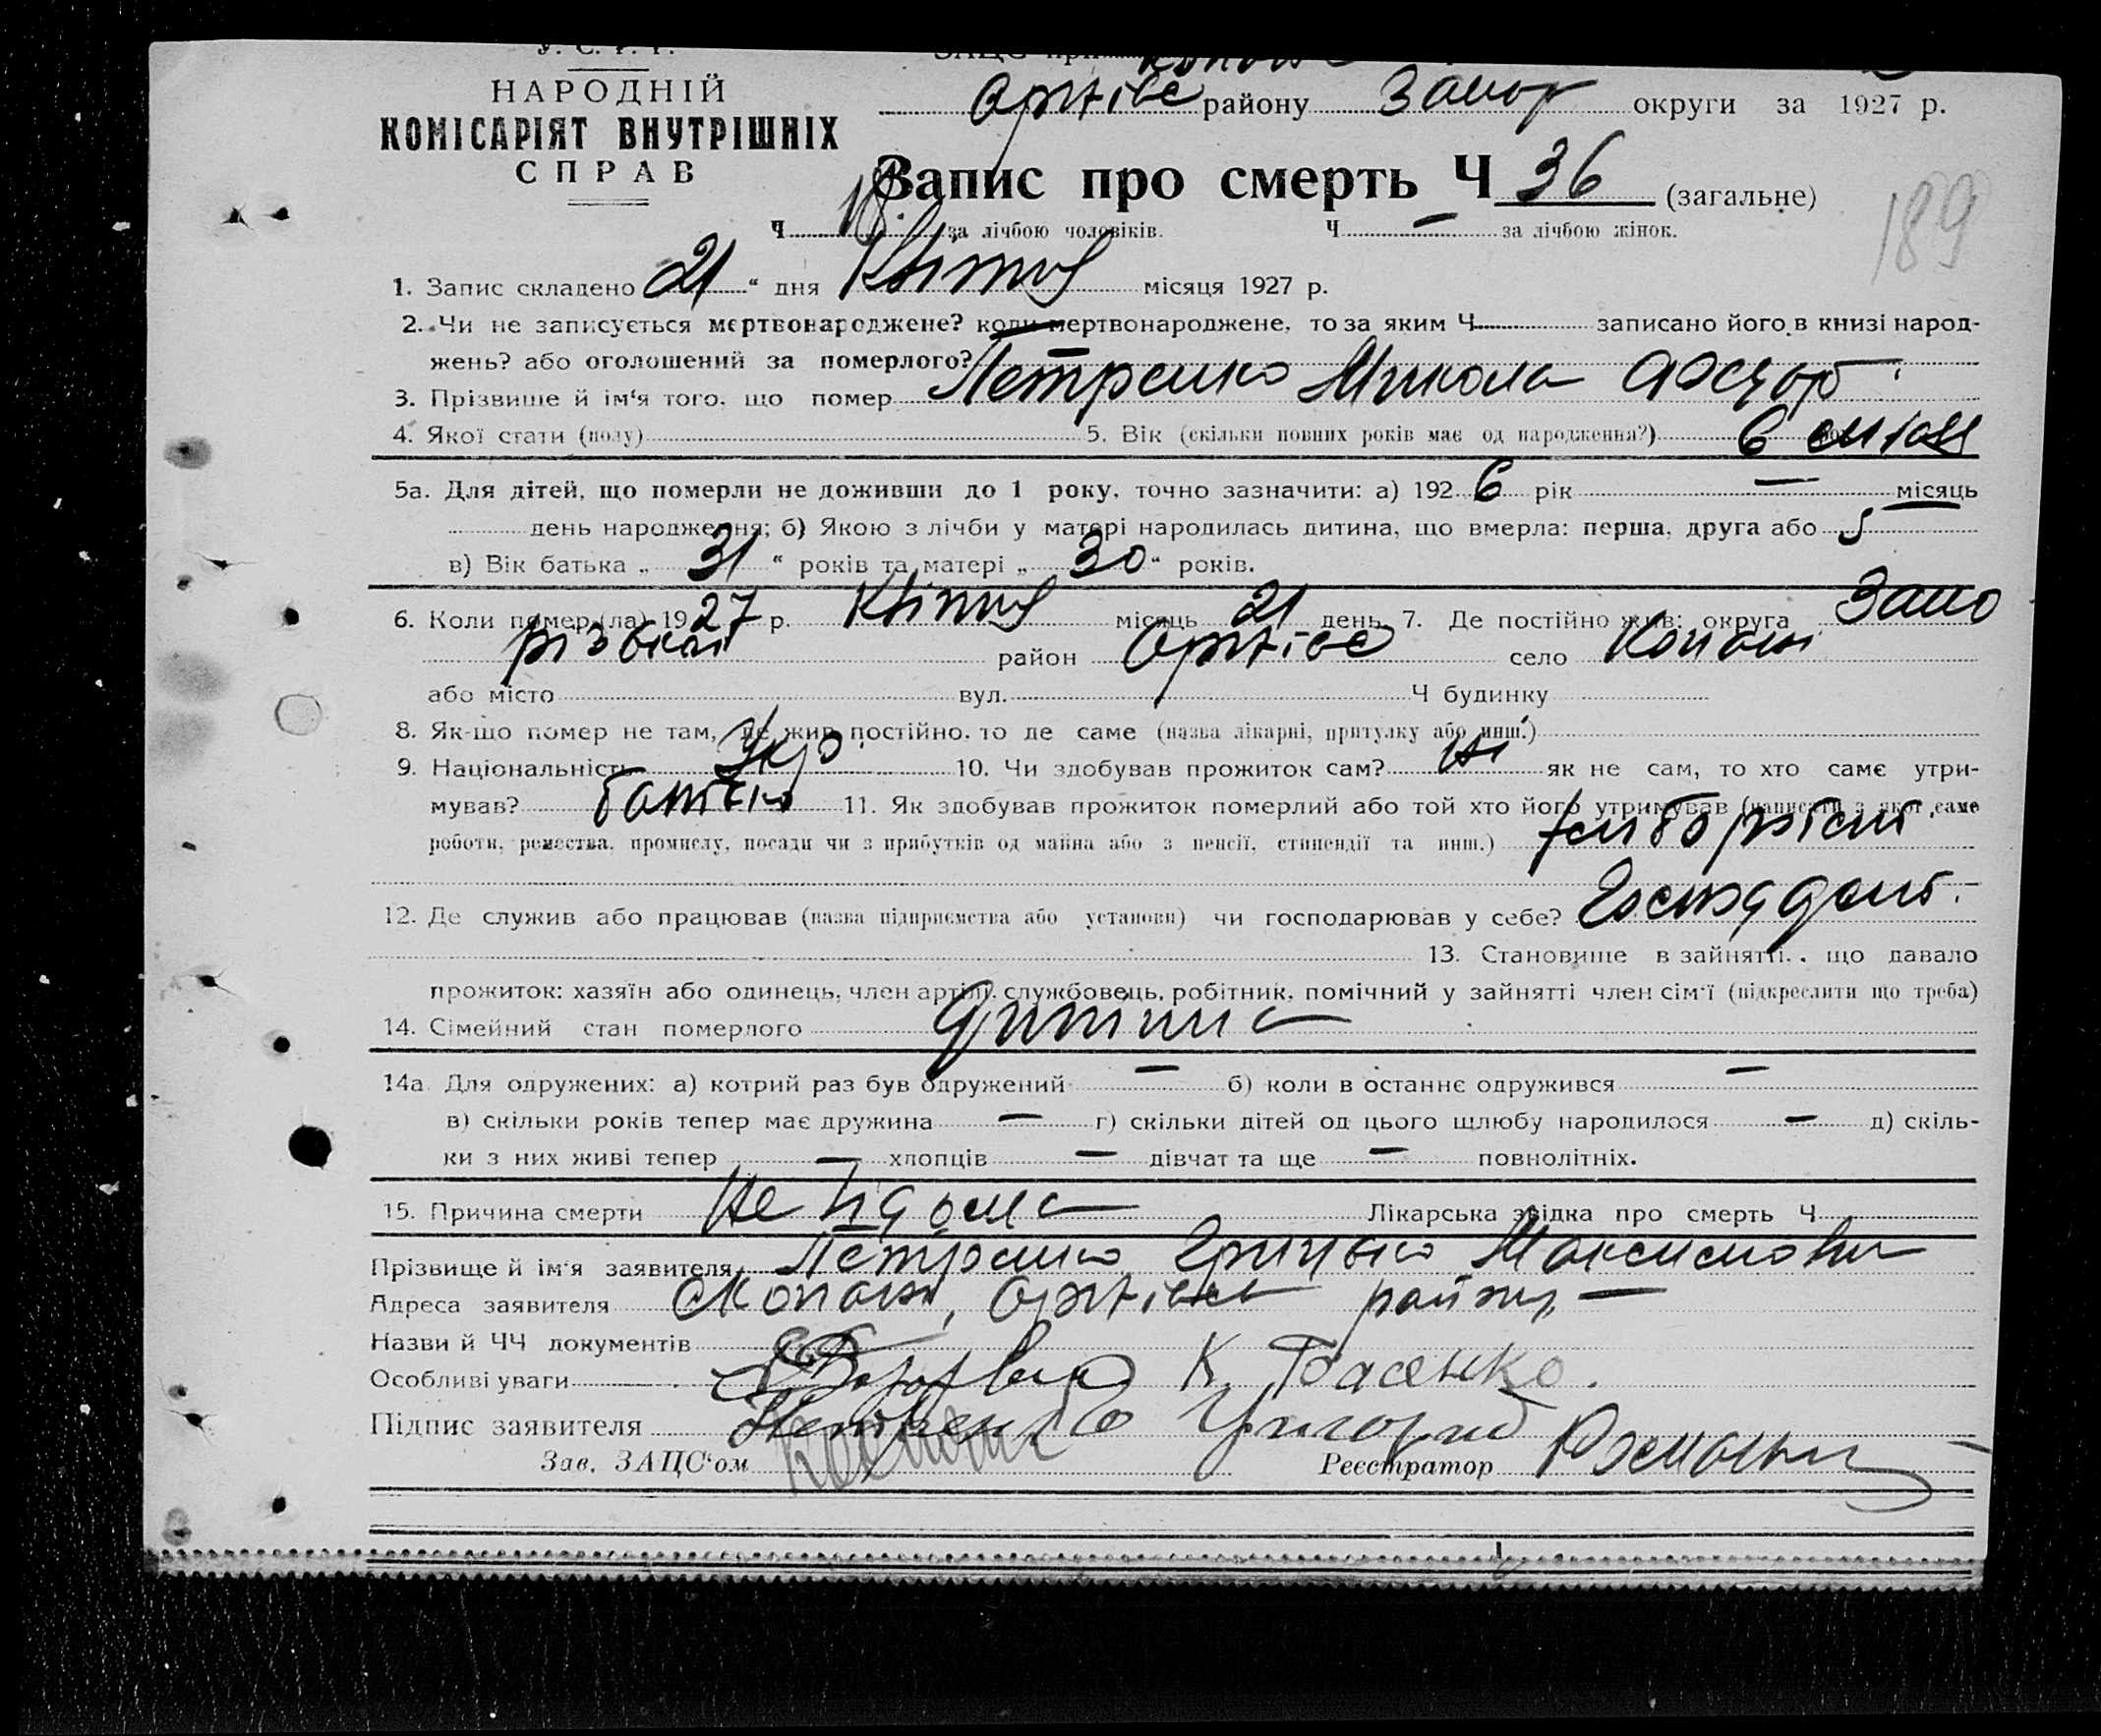 У. С. Р. Р.
НАРОДНІЙ
КОМІСАРІЯТ ВНУТРІШНІХ
СПРАВ
ЗАЦС при
Оріхівс району Запор округи за 1927 р.
Запис про смерть Ч 36 (загальне)
Ч 18. за лічбою чоловіків. Ч — за лічбою жінок.
189
1. Запис складено 21 " дня Квітня місяця 1927 р.
2. Чи не записується мертвонароджене? коли мертвонароджене, то за яким Ч записано його в книзі народ-
жень? або оголошений за померлого? —
3. Прізвище й ім'я того, що помер Петренко Микола Федор.
4. Якої стати (полу) 5. Вік (скільки повних років має од народження?) 6
5а. Для дітей, що померли не доживши до 1 року, точно зазначити: а) 192 6 рік — місяць
день народження; б) Якою з лічби у матері народилась дитина, що вмерла: перша, друга або 5
в) Вік батька „ 31 " років та матері „ 30 " років.
6. Коли помер (ла) 19 27 р. Квітня місяць 21 день. 7. Де постійно жив: округа Запо
різької район Оріхівс село Копані
або місто вул. Ч будинку
8. Як-що помер не там, де жив постійно, то де саме (назва лікарні, притулку або инш.)
9. Національність Укр. 10. Чи здобував прожиток сам? Ні як не сам, то хто саме утри-
мував? батько 11. Як здобував прожиток померлий або той хто його утримував (написати з якої саме
роботи, ремества, промислу, посади чи з прибутків од майна або з пенсії, стипендії та инш.) хліборобст.
12. Де служив або працював (назва підприємства або установи) чи господарював у себе?
13. Становище в занятті, що давало
прожиток: хазяїн або одинець, член артілі, службовець, робітник, помічний у занятті член сім'ї (підкреслити що треба)
14. Сімейний стан померлого дитина
14а. Для одружених: а) котрий раз був одружений — б) коли в останнє одружився —
в) скільки років тепер має дружина — г) скільки дітей од цього шлюбу народилося — д) скіль-
ки з них живі тепер — хлопців — дівчат та ще — повнолітніх.
15. Причина смерти Не відома Лікарська звідка про смерть Ч
Прізвище й ім'я заявителя Петренко Грицько Максимови
Адреса заявителя Копані, Оріхівськ району —
Назви й ЧЧ документів
Особливі уваги К. Басенко.
Підпис заявителя Петренко Григорий
Зав. ЗАЦС'ом Реєстратор